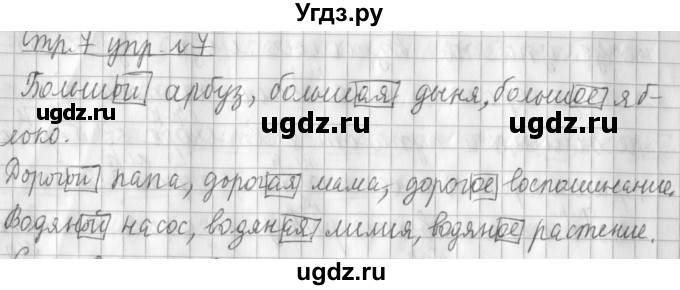 Угдз.ру
Стр. 7 упр. №7
Большой арбуз, большая дыня, большое яб-
ugdz.ru ugdz.ru ugdz.ru
локо.
Дорогой папа, дорогая мама, дорогое воспоминание.
Водяной насос, водяная лилия, водяное растение.
ugdz.ru ugdz.ru ugdz.ru
ugdz.ru